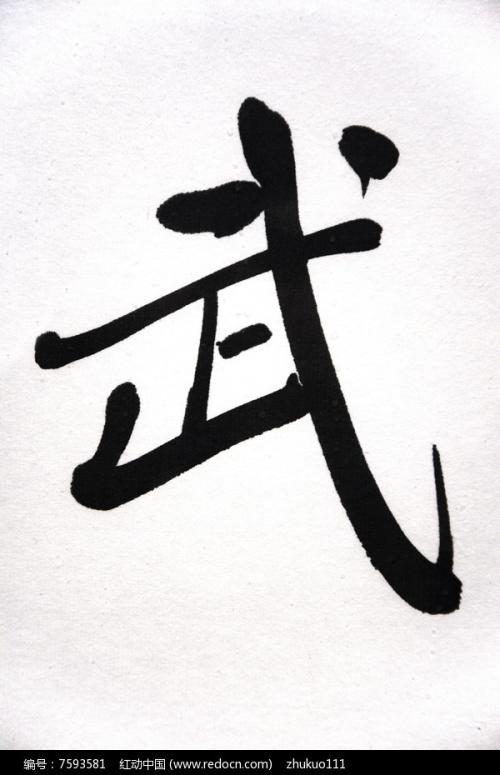 武
编号：7593581 红动中国 (www.redocn.com) zhukuo111